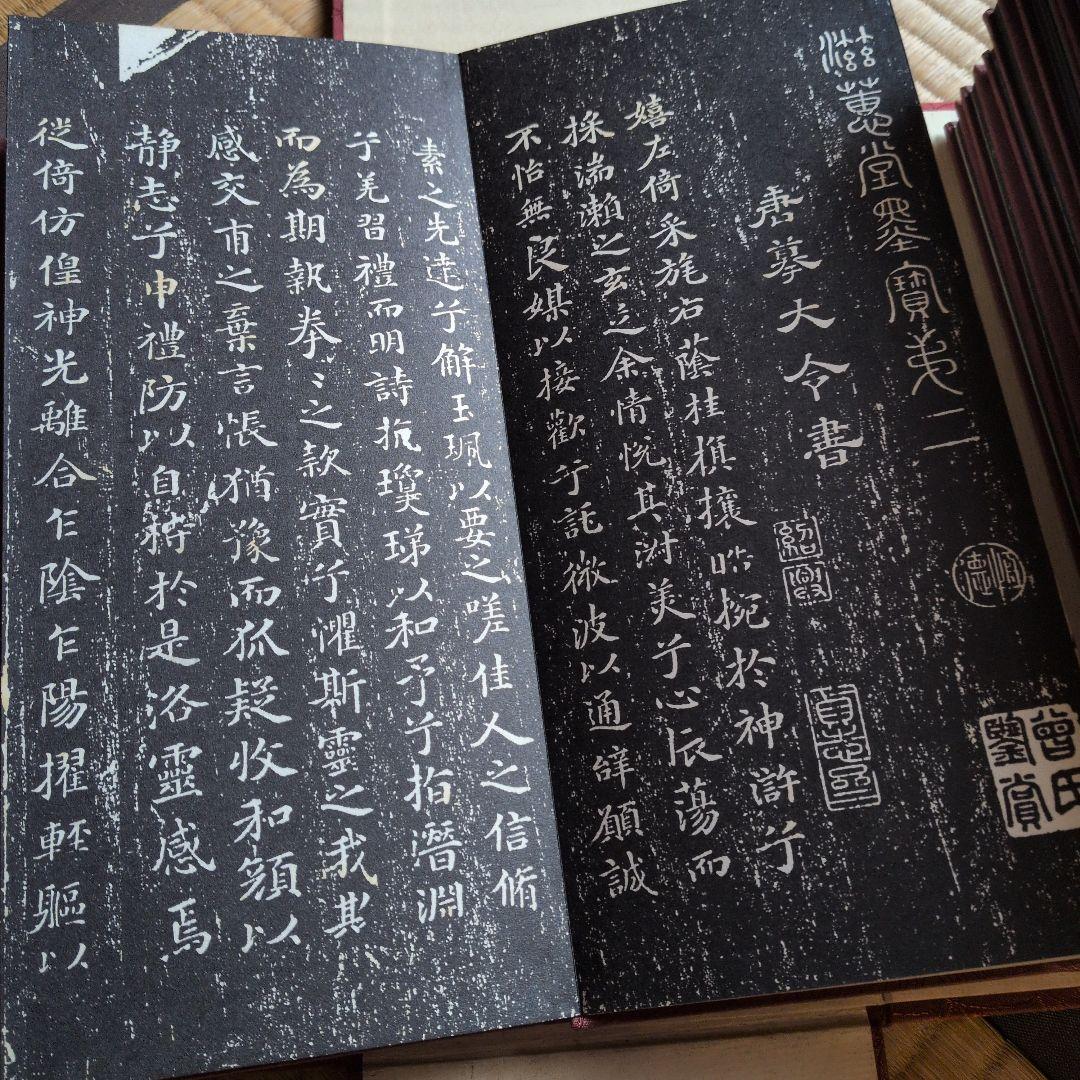 滋蕙堂墨寶弟二
唐摹大令書
嬉左倚采旄右蔭桂棋攘皓捥於神滸兮
採湍瀨之玄芝余情悅其淑美兮心辰蕩而
不怡無良媒以接歡兮託微波以通辭願誠
素之先達兮解玉珮以要之嗟佳人之信脩
兮羌習禮而明詩抗瓊珶以和予兮指潛淵
而為期執拳〻之款實兮懼斯靈之我其
感交甫之棄言悵猶豫而狐疑收和顏以
静志兮申禮防以自持於是洛靈感焉
徙倚仿偟神光離合乍陰乍陽擢輕軀以
曾氏
鑒賞